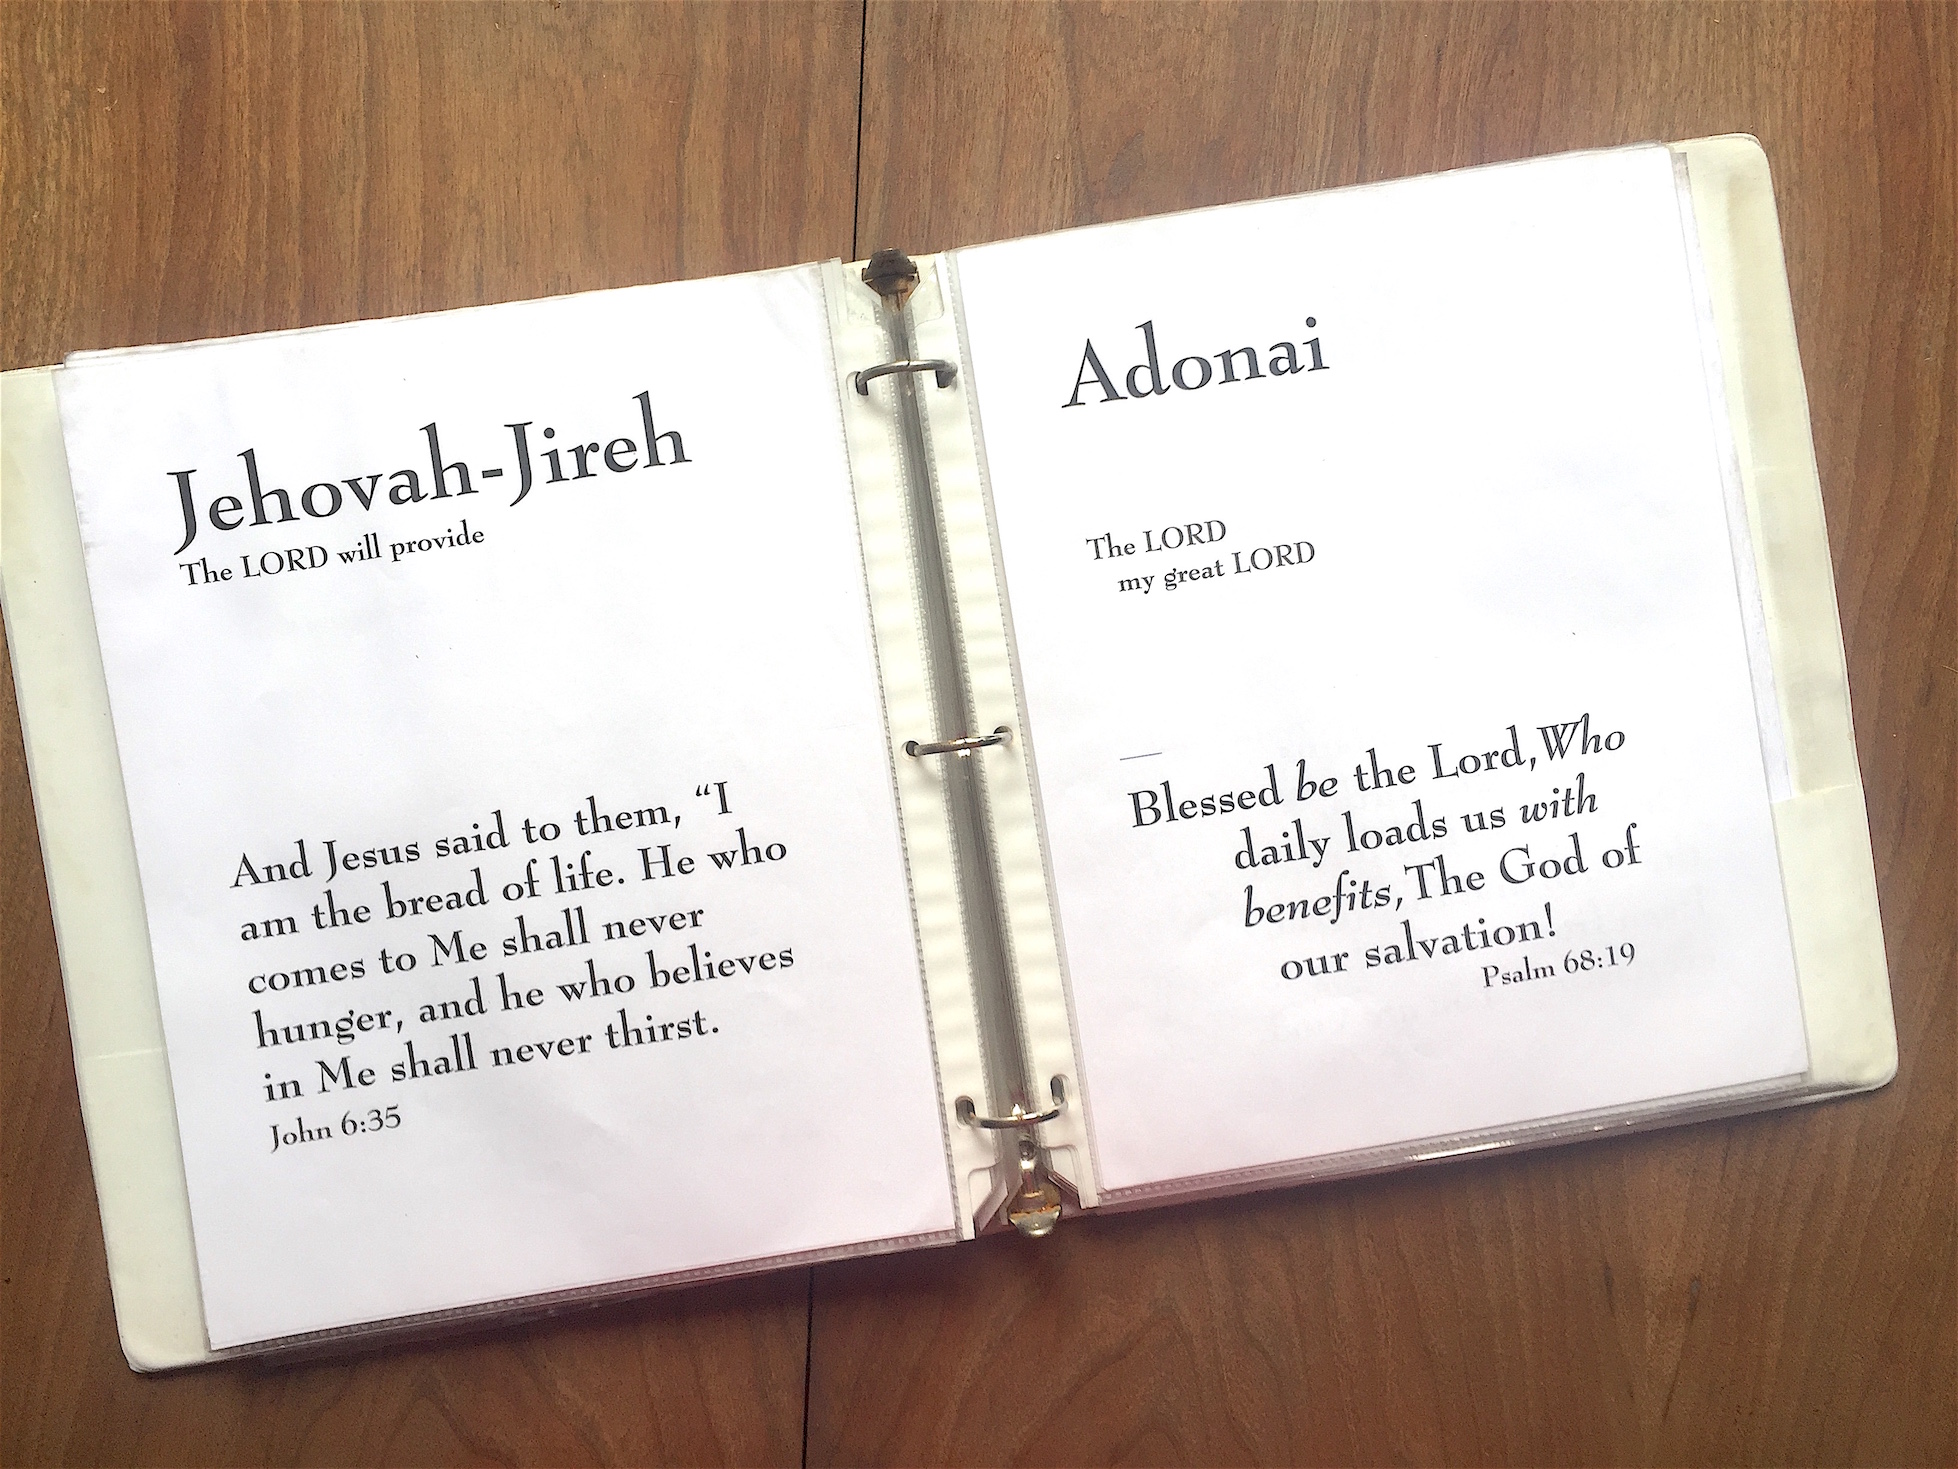 Jehovah-Jireh
The LORD will provide
And Jesus said to them, “I
am the bread of life. He who
comes to Me shall never
hunger, and he who believes
in Me shall never thirst.
John 6:35
Adonai
The LORD
my great LORD
Blessed be the Lord, Who
daily loads us with
benefits, The God of
our salvation!
Psalm 68:19